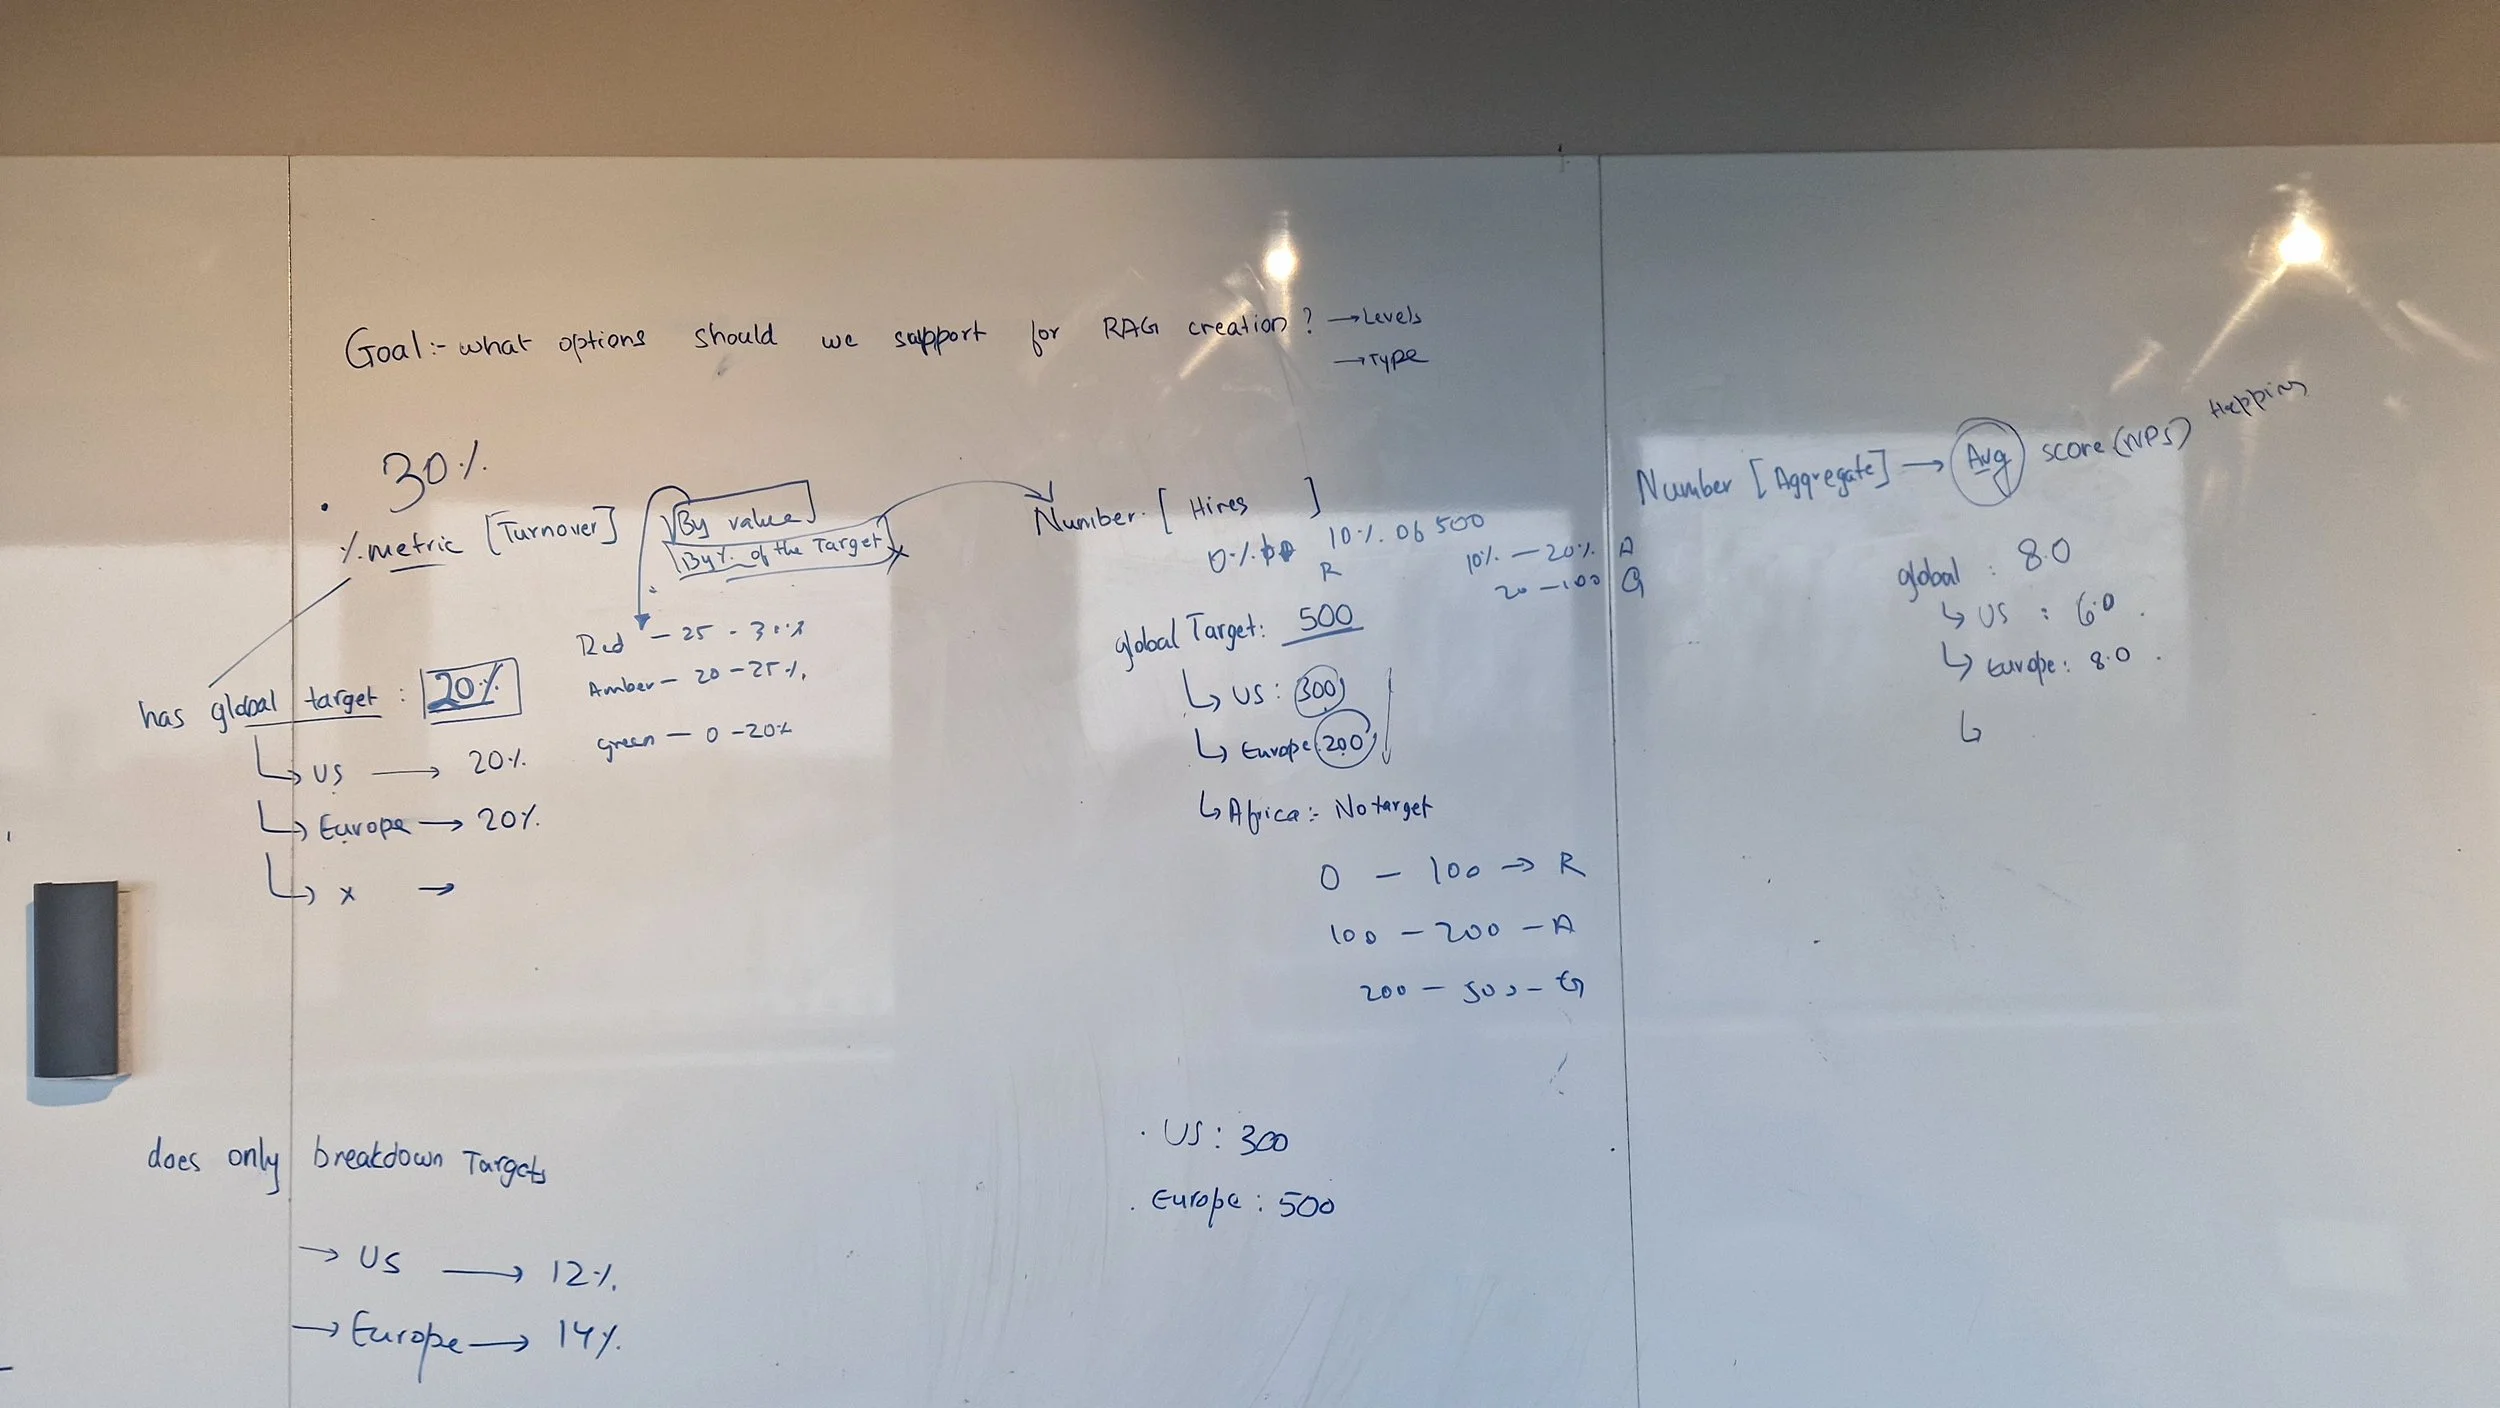 Goal:- what options should we support for RAG creation? → Levels
→ Type
30%
% metric [Turnover]
By value
By % of the Target x
Red - 25 - 30%
Amber - 20 - 25%
green - 0 - 20%
has global target : 20%
↳ US → 20%
↳ Europe → 20%
↳ x →
does only breakdown Targets
→ US → 12%
→ Europe → 14%
Number [Hires]
0% 10% of 500
R
10% - 20% A
20 - 100 G
global Target: 500
↳ US: 300
↳ Europe: 200
↳ Africa:- No target
0 - 100 → R
100 - 200 - A
200 - 500 - G
. US: 300
. Europe: 500
Number [Aggregate] → Avg score (NPS)
global : 8.0
↳ US : 6.0
↳ Europe: 8.0
↳